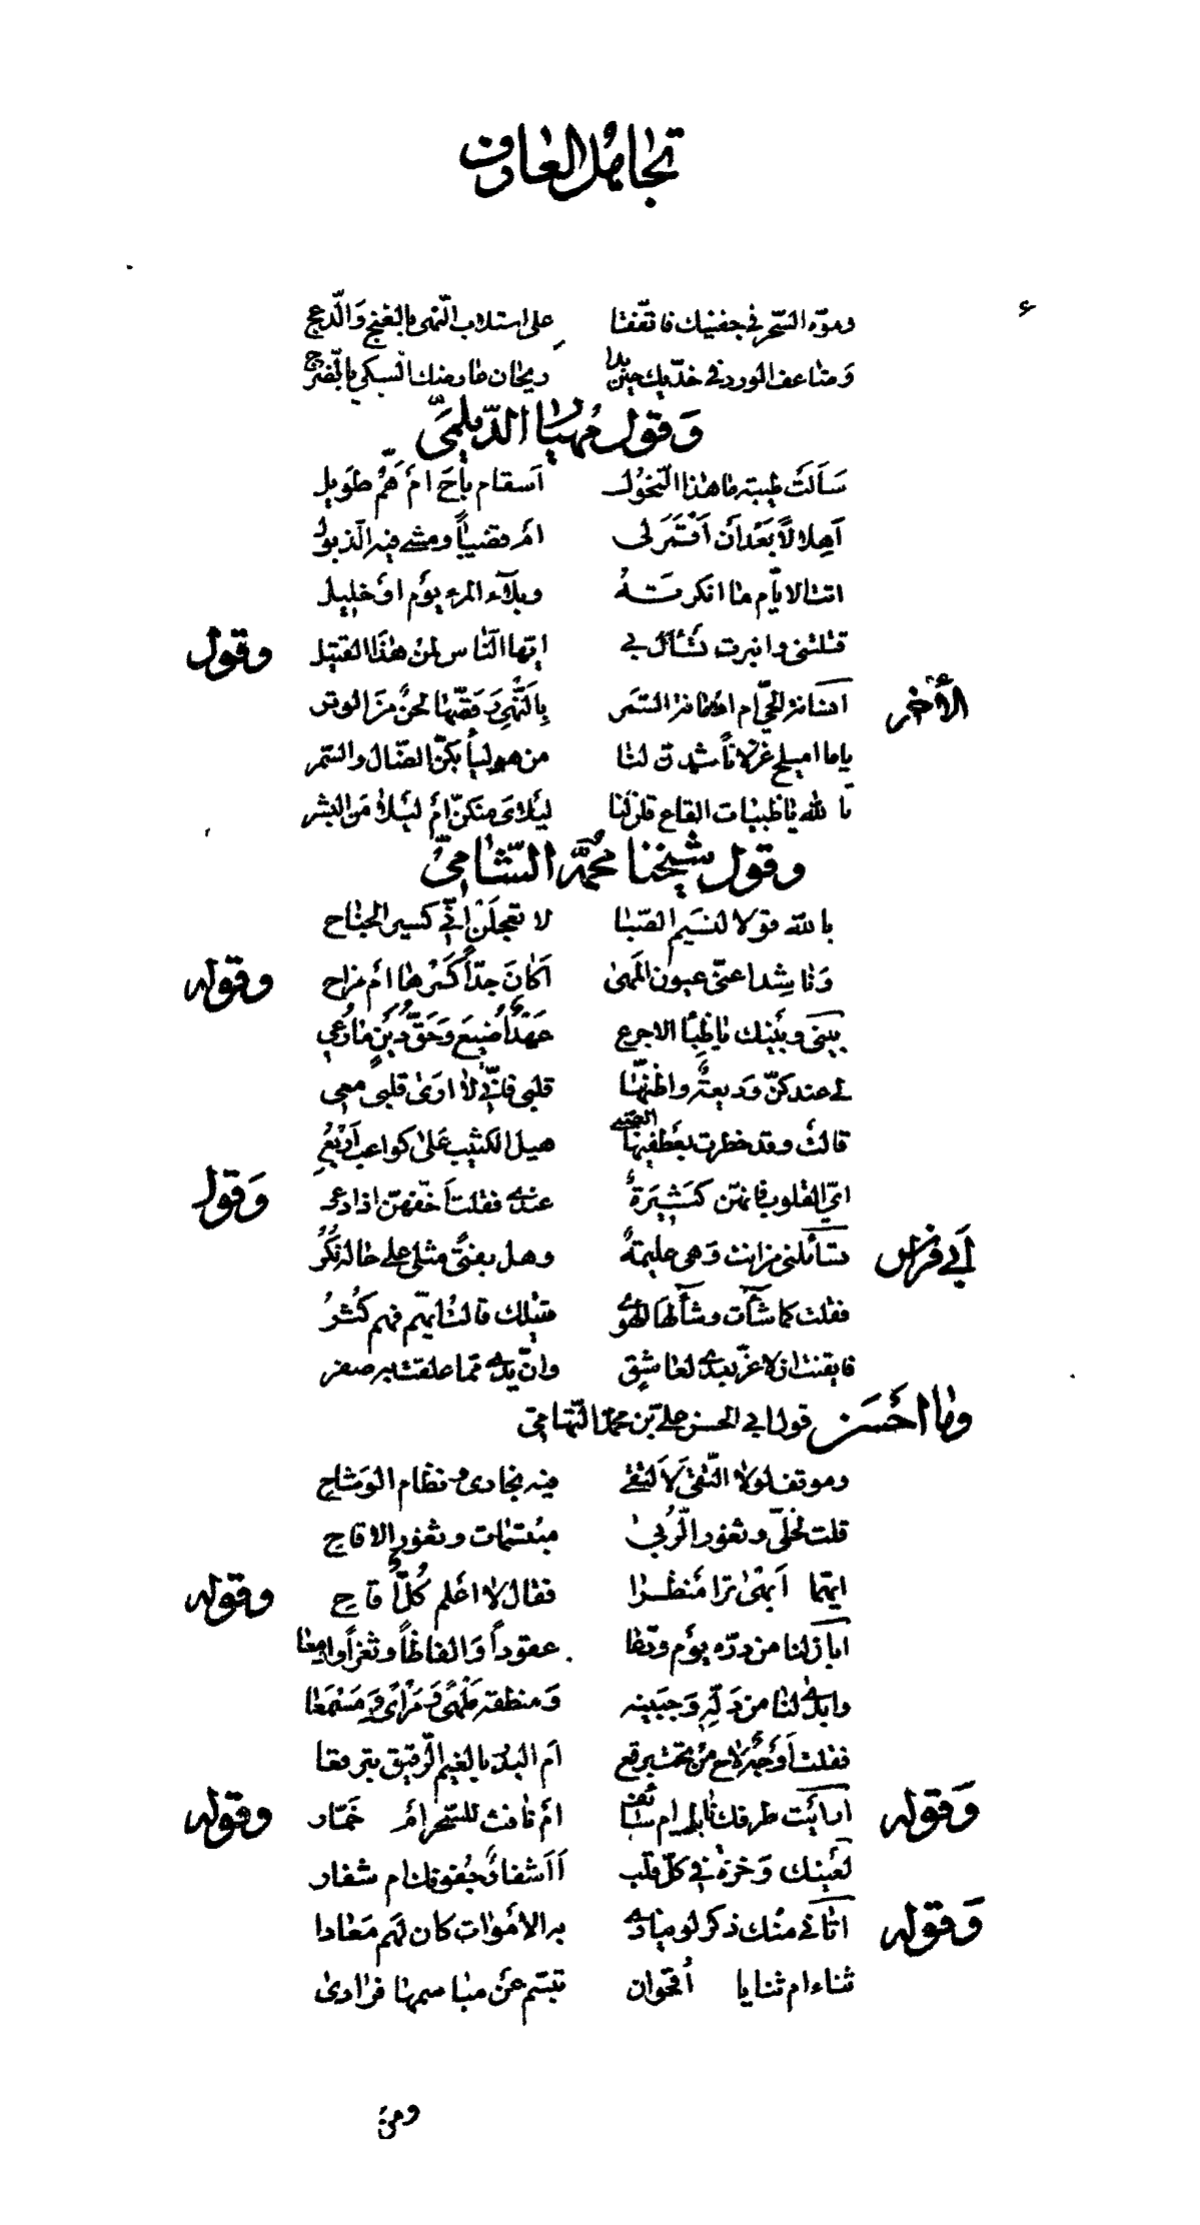 تجاهل العارف
وموّه السّحر في جفنيك فاتّفقا على استلاب النّهى بالغنج والدّعج
وضاعف الورد في خدّيك حين بدا ريحان عارضك المسكي بالضرج
وَقول مُهيار الدّيلميّ
سَاَلَتْ ظبية ماهذا النّحول اَسقام باحَ امْ هَمّ طويل
اَهلالاً بَعْد اَن اَقمَرَ لى امْ قضيباً ومشى فيه الذبول
انت الايّام ما انكرتهُ وبلآء المرء يوم او خليل
قتلتنى وانبرت تسْأل بي ايّها النّاس لمنْ هذا القتيل وقول
الأخر
انسانة الحيّ ام ادمانة السّمر بِالنّهيِ رَقّصها لحنٌ منَ الوتر
ياما اميلح غزلاناً شدن لنا من هوليّا بكنّ الضّال والسّمر
تَاللّه ياظبيات القاع قلن لنا ليلاىَ منكنّ امْ ليلى منَ البشر
وقول شيخنا محمّد الشّاميّ
باللّه قولا لنسيم الصّبا لا تعجلَنْ انّي كسير الجناح
وَناشِدا عنّى عيون المَهى اَكانَ جدّاً كَسرها امْ مزاح وقوله
بيني وبيْنك ياظِبا الاجرع عَهدٌ اُضيعَ وَحقّ دَيْنٍ مارُعي
لي عند كنّ وَديعةٌ واظنّها قلبى فانّي لا ارى قلبى معي
قالتْ وقد خطرت بعطفيها الصبا هيل الكثيب عَلى كواعب اَرْبعِ
ايّ القلوب فانهنّ كَثيرَةٌ عندى فقلت اَخفّهنّ اذا دعى وَقول
اَبي فراس تسَآئلنى من انت وَهى عليمةٌ وهل بفتىً مثلى على حاله نُكْرُ
فقلت كما شآءت وشآء لها الهوى قتيلك قالت ايّهم فهم كُثرُ
فايقنت ان لا عزّ بعدى لعاشقٍ وانّ يدى ممّا علقت به صفر
وما اَحْسَن قول ابي الحسن علي بن محمّد التّهاميّ
وموقف لولا التّقى لاَلتقى فيه نجادى ونظام الوشاح
قلت لخلّي وثغور الرّبى مبتسمات وثغور الاقاح
ايّهما اَبهى ترا مَنظرا فقال لا اعْلم كُلٌّ اقاح وقوله
ابان لنا من درّه يوْم ودّعا عقوداً وَالفاظاً وثغراً وادمعا
وابدى لنا من دَلّهِ وَجبينه وَمنطقه مَلْهًى وَمَرْأى وَمَسْمَعا
فقلت اَوَجْهٌ لاح منْ تحت برقع اَم البدْر بالغيم الرّقيق تبرقعا
وَقوله ارَايْت طرفك نابل ام سائف امْ نافث للسّحر امْ خمّار وقوله
لعيْنك وَخزةٌ في كلّ قلب اَاَشفارٌ جُفونك ام شفار
وَقوله اتاني منْك ذكر لو ينادى به الاَمْوات كان لهم مَعادا
ثناء ام ثنايا اُقحوان تبسّم عَنْ مباسمها فرادى
ومن